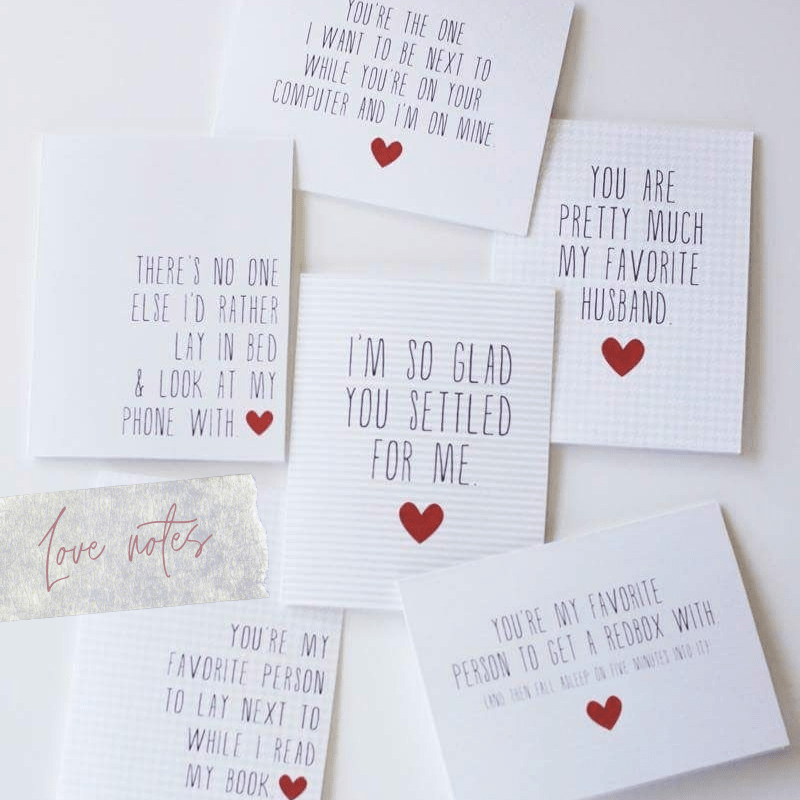 YOU'RE THE ONE
I WANT TO BE NEXT TO
WHILE YOU'RE ON YOUR
COMPUTER AND I'M ON MINE.
YOU ARE
PRETTY MUCH
MY FAVORITE
HUSBAND.
THERE'S NO ONE
ELSE I'D RATHER
LAY IN BED
& LOOK AT MY
PHONE WITH.
I'M SO GLAD
YOU SETTLED
FOR ME.
Love notes
YOU'RE MY FAVORITE
PERSON TO GET A REDBOX WITH
(AND THEN FALL ASLEEP ON FIVE MINUTES INTO IT)
YOU'RE MY
FAVORITE PERSON
TO LAY NEXT TO
WHILE I READ
MY BOOK.